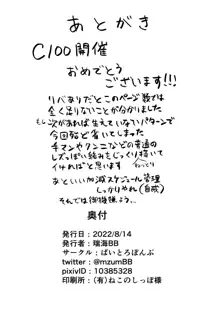 あとがき
C100開催
おめでとう
ございます!!!
リバありだとこのページ数では
全く足りないことが分かりました
次があれば生えていないパターンで
今回殆ど省いてしまった
手マンやクンニなどの普通の
レズっぽい絡みをじっくり描いて
イければと思います
あといい加減スケジュール管理
しっかりやれ(自戒)
それでは御機嫌よう…
奥付
発行日:2022/8/14
発行者:瑞海BB
サークル:ばいとろぼんぷ
twitter:@mzumBB
pixivID:10385328
印刷所:(有)ねこのしっぽ様